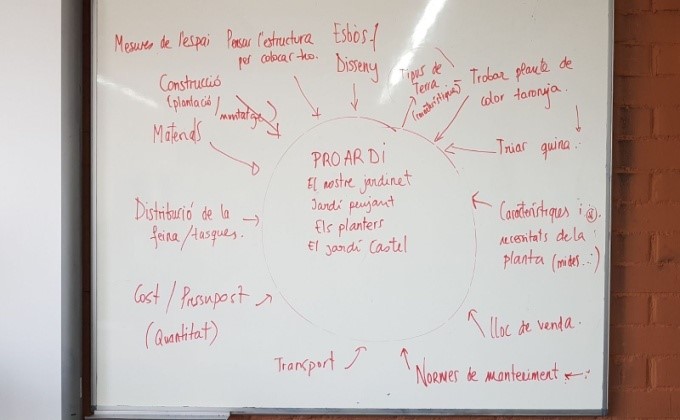 Mesures de l'espai
Pensar l'estructura
per colocar-ho.
Esbós /
Disseny
Tipus de
Terra
(característiques)
Trobar planta de
color taronja.
Triar quina.
Construcció
(plantació /
muntatge)
Materials
PROARDI
El nostre jardinet
Jardí penjant
Els planters
El jardí Castel
Distribució de la
feina/tasques.
Característiques i
necessitats de la
planta (mides...)
Cost / Pressupost
(Quantitat)
Lloc de venda.
Transport
NORMES de manteniment